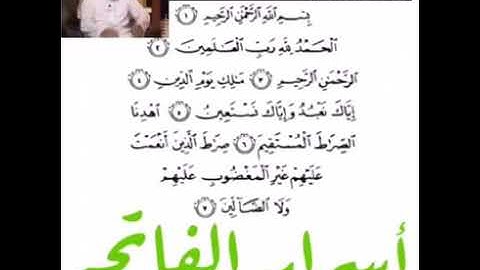 بِسْمِ ٱللَّهِ ٱلرَّحْمَٰنِ ٱلرَّحِيمِ ١
ٱلْحَمْدُ لِلَّهِ رَبِّ ٱلْعَٰلَمِينَ ٢
ٱلرَّحْمَٰنِ ٱلرَّحِيمِ ٣ مَٰلِكِ يَوْمِ ٱلدِّينِ ٤
إِيَّاكَ نَعْبُدُ وَإِيَّاكَ نَسْتَعِينُ ٥ ٱهْدِنَا
ٱلصِّرَٰطَ ٱلْمُسْتَقِيمَ ٦ صِرَٰطَ ٱلَّذِينَ أَنْعَمْتَ
عَلَيْهِمْ غَيْرِ ٱلْمَغْضُوبِ عَلَيْهِمْ
وَلَا ٱلضَّآلِّينَ ٧
أسرار الفاتحة